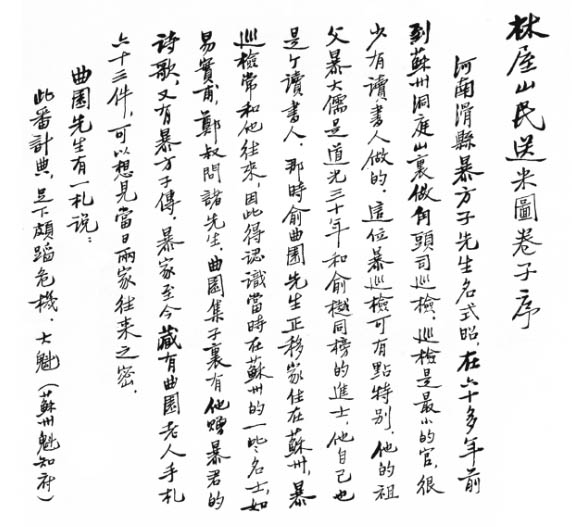 林屋山民送米圖卷子序
河南滑縣暴方子先生名式昭,在六十多年前
到蘇州洞庭山裏做角頭司巡檢。巡檢是最小的官,很
少有讀書人做的。這位暴巡檢可有點特別,他的祖
父暴大儒是道光三十年和俞樾同榜的進士,他自己也
是个讀書人。那時俞曲園先生正移家住在蘇州,暴
巡檢常和他往來,因此得認識當時在蘇州的一些名士,如
易實甫,鄭叔問諸先生。曲園集子裏有他贈暴君的
詩歌,又有暴方子傳。暴家至今藏有曲園老人手札
六十三件,可以想見當日兩家往來之密。
曲園先生有一札說:
此番計典,足下頗蹈危機。士魁(蘇州魁知府)